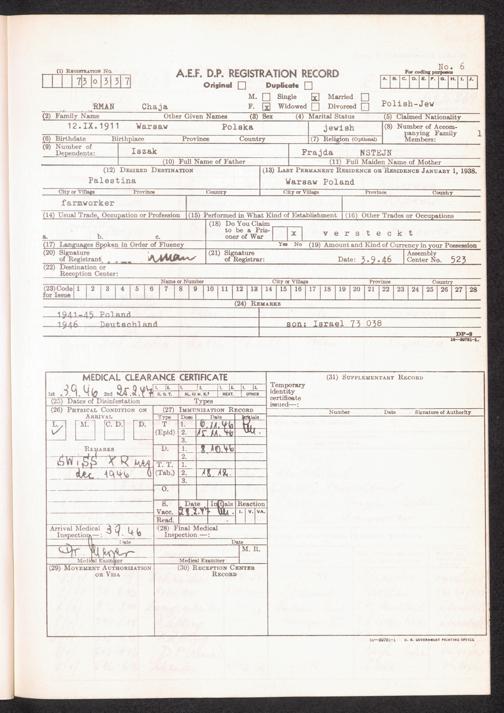 No. 6
(1) REGISTRATION NO.
730337
A.E.F. D.P. REGISTRATION RECORD
For coding purposes
A. B. C. D. E. F. G. H. I. J.
Original Duplicate
M. Single x Married
F. x Widowed Divorced
RMAN Chaja Polish-Jew
(2) Family Name Other Given Names (3) Sex (4) Marital Status (5) Claimed Nationality
12.IX.1911 Warsaw Polska jewish
(6) Birthdate Birthplace Province Country (7) Religion (Optional)
(8) Number of Accompanying Family Members: 1
(9) Number of Dependents: Iszak Frajda NSTEJN
(10) Full Name of Father (11) Full Maiden Name of Mother
(12) DESIRED DESTINATION (13) LAST PERMANENT RESIDENCE OR RESIDENCE JANUARY 1, 1938.
Palestina Warsaw Poland
City or Village Province Country City or Village Province Country
farmworker
(14) Usual Trade, Occupation or Profession (15) Performed in What Kind of Establishment (16) Other Trades or Occupations
a. b. c.
(18) Do You Claim to be a Prisoner of War x versteckt
(17) Languages Spoken in Order of Fluency Yes No (19) Amount and Kind of Currency in your Possession
(20) Signature of Registrant: rman (21) Signature of Registrar: Date: 3.9.46 Assembly Center No. 523
(22) Destination or Reception Center:
Name or Number City or Village Province Country
(23) Code for Issue 1 2 3 4 5 6 7 8 9 10 11 12 13 14 15 16 17 18 19 20 21 22 23 24 25 26 27 28
(24) REMARKS
1941-45 Poland
1946 Deutschland son: Israel 73 038
DP-2
16-39781-1
MEDICAL CLEARANCE CERTIFICATE
1st 3.9.46 2nd 25.2.47
(25) Dates of Disinfestation Types
(26) PHYSICAL CONDITION ON ARRIVAL
I. M. C.D. D.
REMARKS
SWISS XR
dec 1946
(27) IMMUNIZATION RECORD
Type Dose Date Initials
T (Epid) 1.
2. 15.11.46
3.
D. 1. 8.10.46
2.
T.T. (Tab.) 1.
2. 18.12.
3.
O.
S. Date Initials Reaction
Vacc. I. V. VA.
Read.
Arrival Medical Inspection—: 3.9.46
Date
Dr
Medical Examiner
(28) Final Medical Inspection—:
Date
M. R.
Medical Examiner
(29) MOVEMENT AUTHORIZATION OR VISA
(30) RECEPTION CENTER RECORD
(31) SUPPLEMENTARY RECORD
Temporary identity certificate issued—:
Number Date Signature of Authority
16-39781-1 U. S. GOVERNMENT PRINTING OFFICE